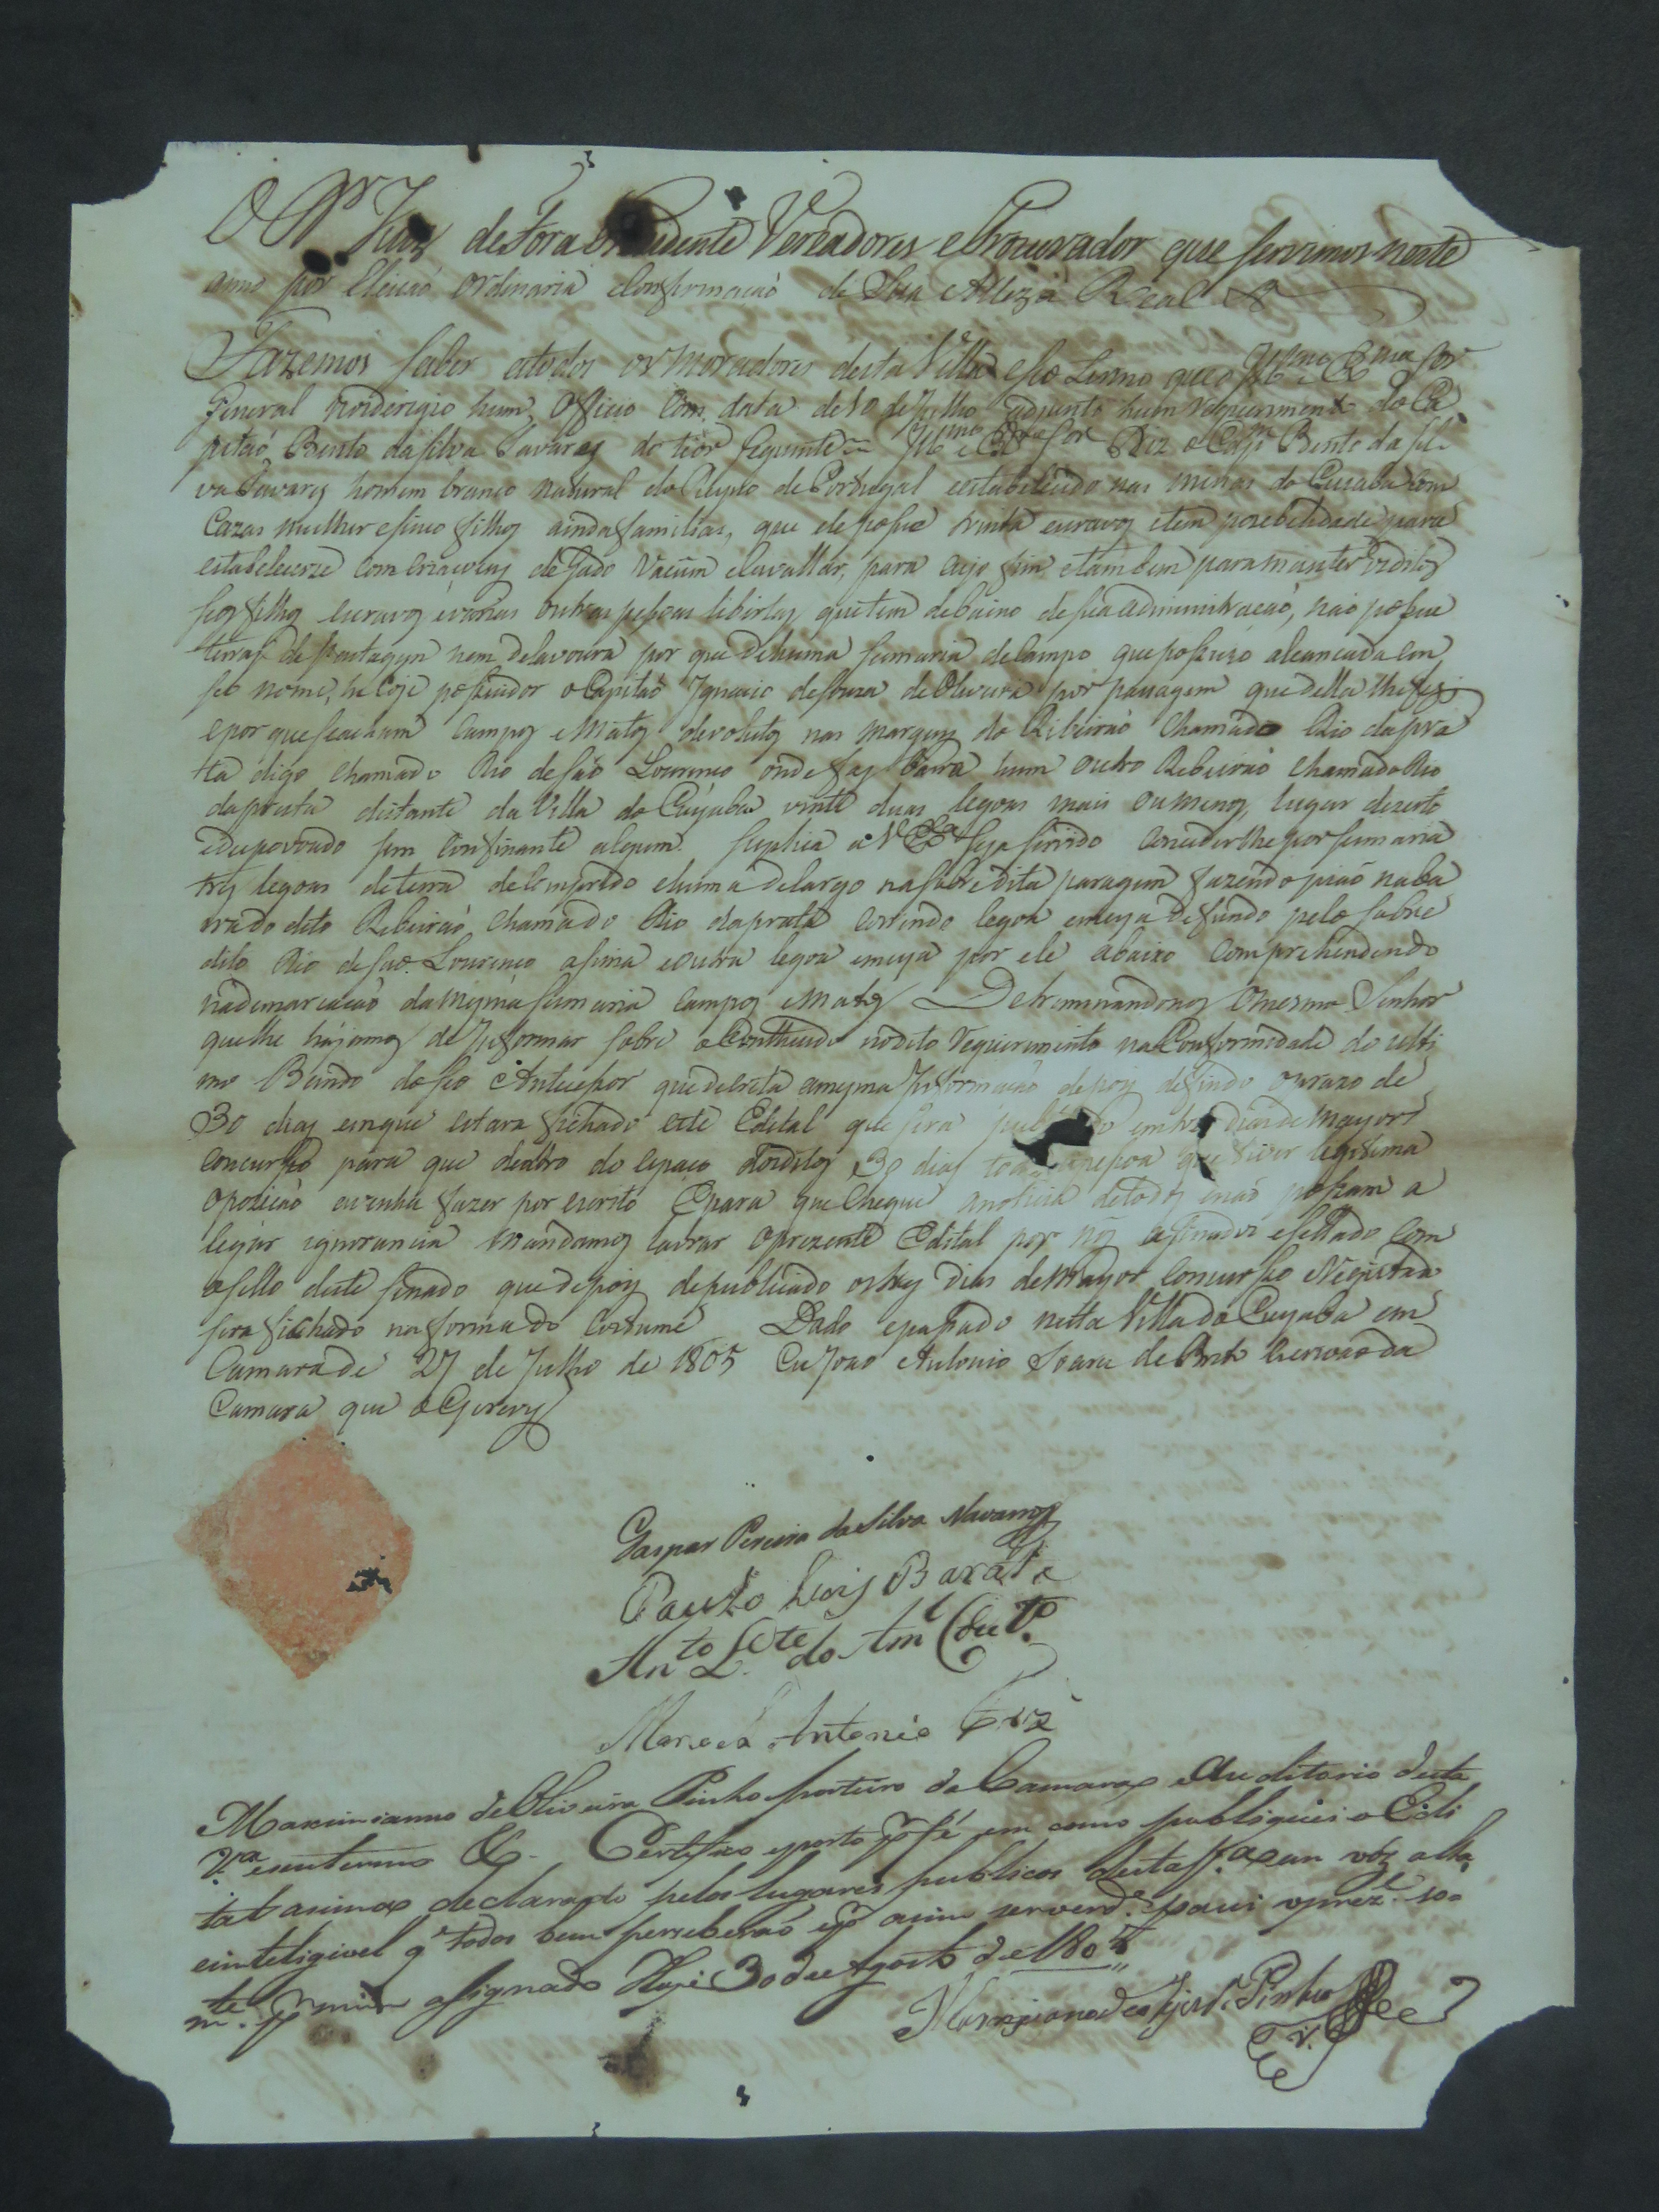 O Dr Juiz de Fora Prezidente Vereadores e Procurador que servimos neste
anno por Eleiçaõ ordinaria eConfirmaçaõ de Sua Alteza Real &
Fazemos saber atodos os Moradores desta Villa eseo Termo que o Illmo e Exmo Snr
General nos derigio hum Officio Com data de 10 de Julho e adjunto hum requerimento do Ca
pitaõ Bento da Silva Tavares do tior Seguinte = Illmo e Exmo Snr Diz o Capm Bento da Sil
va Tavares homem branco natural do Reyno de Portugal estabelecido nas minas do Cuiaba com
Cazas mulher esinco filhos ainda familias, que ele posue trinta escravos etem posebelidade para
estabelecerse Com Criaçoens de Gado Vacum eCavallar, para cujo fim etambem para manter os ditos
seos filhos escravos evarias outras pesoas libertas que tem debaixo de sua adiministraçaõ, naõ posue
terras de pastagem nem delavoura por que dehuma sesmaria deCampo que posuio alcancada em
seo nome, he oje posuidor o Capitaõ Ignacio de Souza de Oliveira por pasagem que della lhe fes
epor que seacham Campos eMatos devolutos nas margens do Ribeiraõ Chamado Rio da pra
ta digo chamado Rio de Saõ Lourenço onde faz barra hum outro Ribeiraõ chamado Rio
daprata distante da Villa do Cuyaba vinte duas legoas mais ou menos, lugar dezerto
edespovoado sem Confinante algum. Suplica a V Exa Seja servido Concederlhe por sesmaria
tres legoas deterra deComprido ehuma delargo na sobredita paragem fazendo piaõ naba
rra do dito Ribeiraõ Chamado Rio daprata Correndo legoa emeya defundo pelo sobre
dito Rio de Saõ Lourenço asima eoutra legoa emeya por ele abaixo Comprehendendo
na demarcacaõ da mesma sesmaria Campos eMatos Determinandonos o mesmo Senhor
que lhe hajamos de Informar sobre o Contheudo no dito requerimento na Conformidade do ulti
mo Bando do seo Antecesor que decreta a mesma Informaçaõ depois de findo o prazo de
30 dias em que estara fichado este Edital que sera publicado em tres dias de Mayor
concurso para que dentro do espaço dos ditos 30 dias toda a pesoa que tiver legitima
oposicaõ avenha fazer por escrito E para que Chegue anoticia de todos enaõ posam a
legar ignorancia Mandamos lavrar o prezente Edital por nós asinado e sellado com
o sello deste Senado que depois depublicado os tres dias de Mayor Concurso e Registado
sera fichado na forma do Costume Dado epasado nesta Villa do Cuyaba em
Camara de 27 de Julho de 1805 Eu Joaõ Antonio Soares de Brito Escrivaõ da
Camara que o Escrevy
Gaspar Pereira da Silva Navarro
Paulo Luis Barata
Anto Lte do Aml Couto
Antonio
Maximianno de Oliveira Pinho porteiro da Camara e Auditorio desta
Va eseu termo &. Certifico eporto por fé em como publiquei o Edi
tal asima declarado pelos lugares publicos desta Va em vóz alta
einteligivel q todos bem perceberaõ e por asim ser verde. pasei o prezte. so
mte. por mim asignado Hoje 30 de Agosto de 1805
Pinho